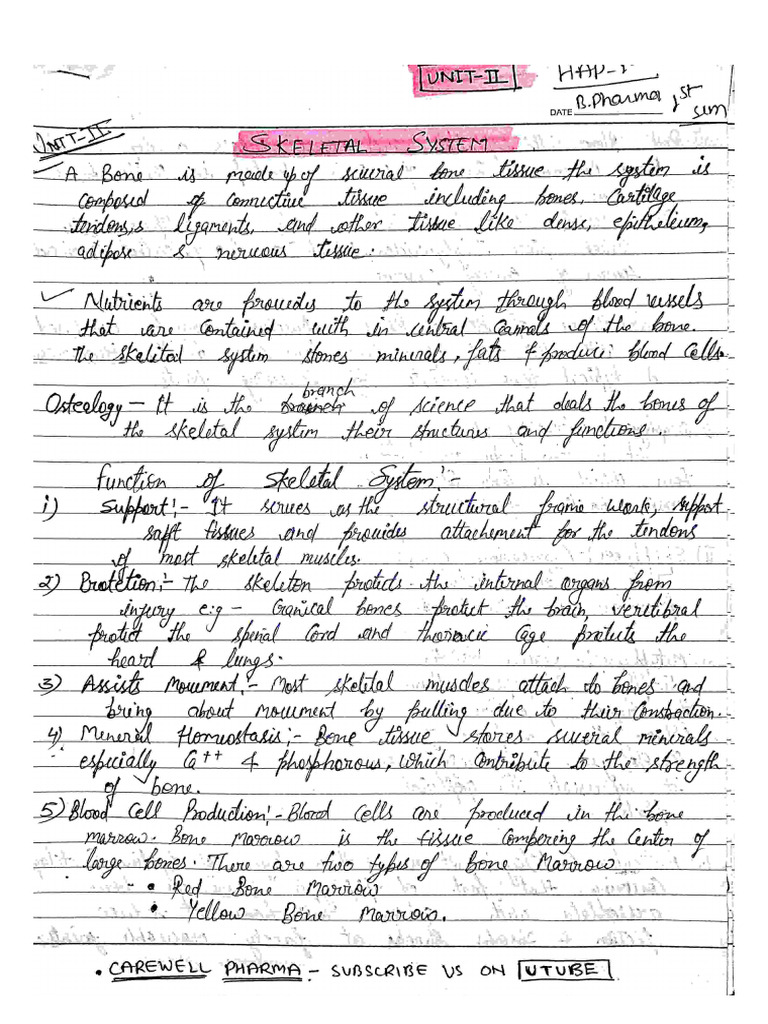 UNIT-II HAP-I
B.Pharma 1st sem
DATE
UNIT-II
SKELETAL SYSTEM
A Bone is made up of sciveral bone tissue the system is
composed of connective tissue including bones, Cartilage
tendons,s ligaments, and other tissue like dense, epitheleum,
adipose & nervous tissue.
Nutrients are provides to the system through blood vessels
that are contained with in central Cannels of the bone.
The skelital system stones minerals, fats & produce blood cells.
Ostealogy- It is the branch of science that deals the bones of
the skeletal system their structures and functions.
function of skeletal System:-
i) Support:- It serves as the structural frame work, support
saft tissues and provides attachement for the tendons
of most skeletal muscles.
2) Protetion:- The skeleton protects the internal organs from
injury e:g - Cranical bones protect the brain, veretibral
protect the spenial Cord and thoracic Cage protects the
heard & lungs.
3) Assists Movment:- Most skelital muscles attach to bones and
bring about movment by pulling due to their Constraction.
4) Meneral Homeostasis:- Bone tissue stores several minerals
especially Ca++ & phosphorous, which contribute to the strength
of bone.
5) Blood Cell Production:- Blood Cells are produced in the bone
marrow. Bone Marrow is the tissue compering the Center of
large bones. There are two types of Bone Marrow
• Red Bone Marriow
• Yellow Bone Marrow.
• CAREWELL PHARMA - SUBSCRIBE US ON UTUBE